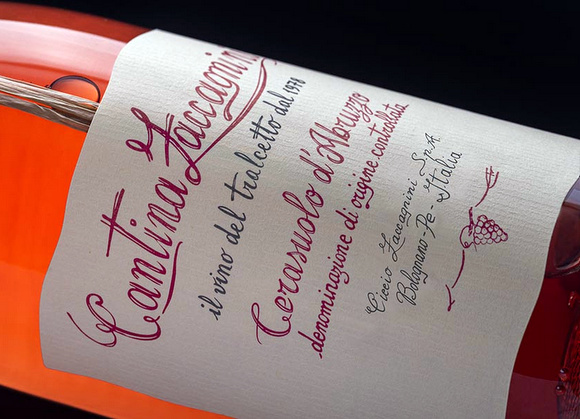 Cantina Zaccagnini
il vino del tralcetto dal 1978
Cerasuolo d'Abruzzo
denominazione di origine controllata
Ciccio Zaccagnini S.p.A.
Bolognano-Pe-Italia